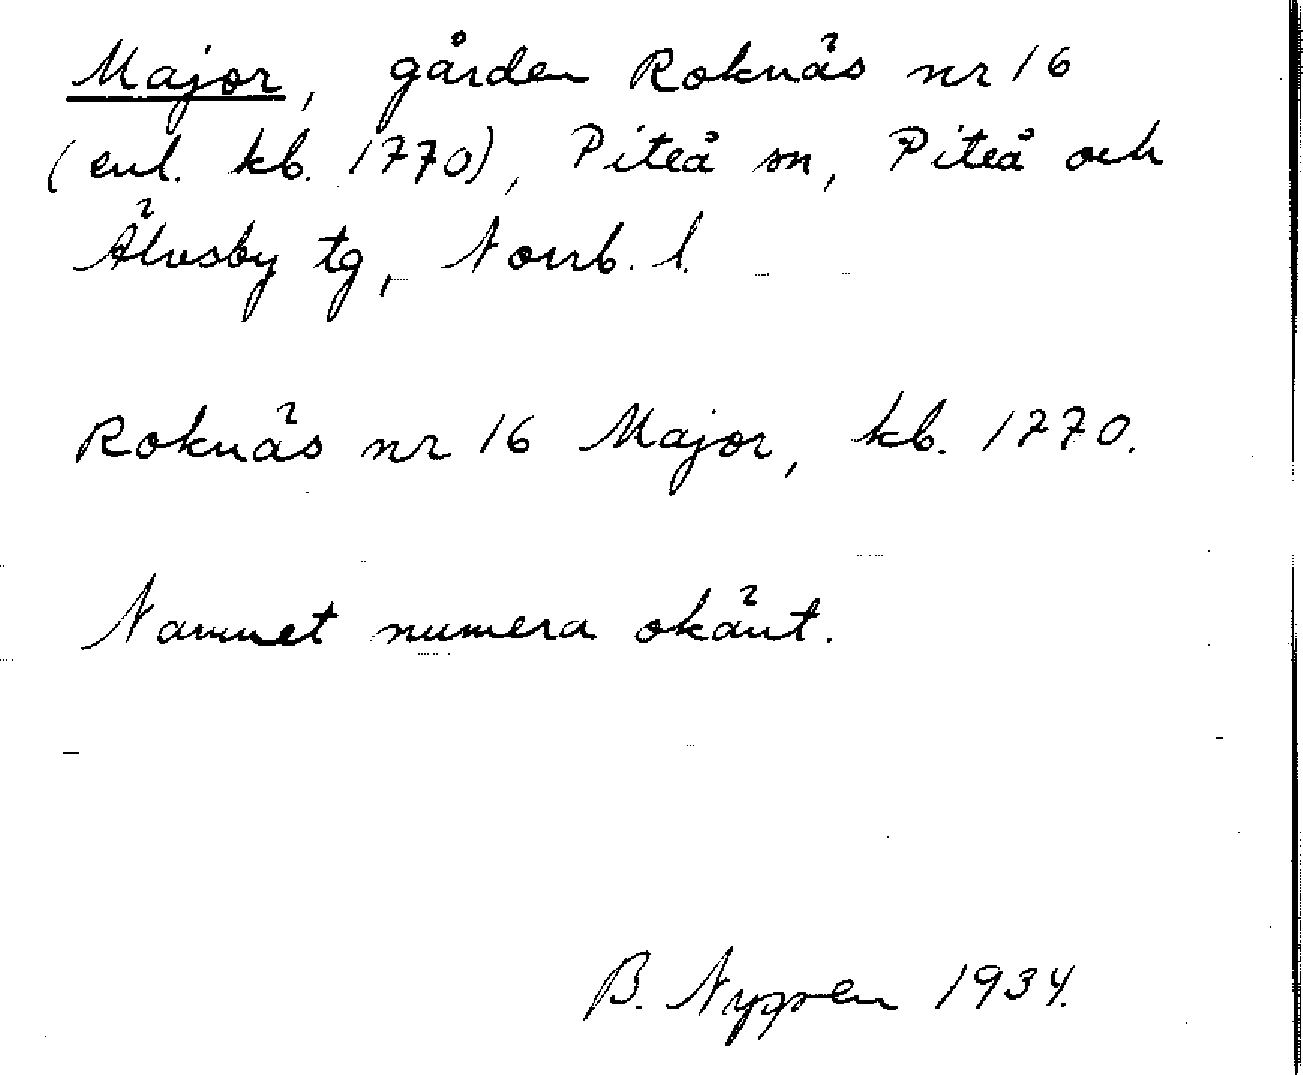 Major, gården Roknäs nr 16
(enl. kb. 1770), Piteå sn, Piteå och
Älvsby tg, Norrb. l.
Roknäs nr 16 Major, kb. 1770.
Namnet numera okänt.
B. 1934.